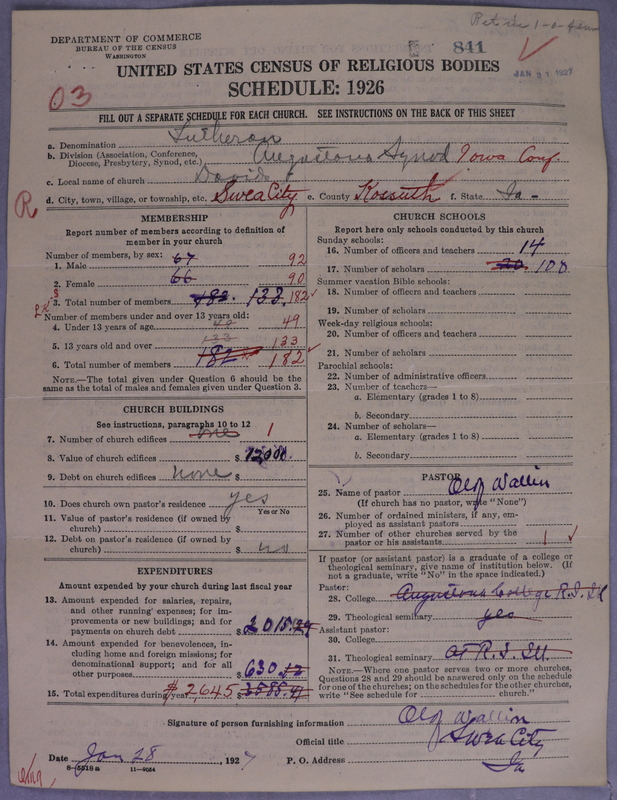 DEPARTMENT OF COMMERCE
BUREAU OF THE CENSUS
WASHINGTON
841
JAN 31 1927
UNITED STATES CENSUS OF RELIGIOUS BODIES
SCHEDULE: 1926
03
FILL OUT A SEPARATE SCHEDULE FOR EACH CHURCH. SEE INSTRUCTIONS ON THE BACK OF THIS SHEET
a. Denomination Lutheran
b. Division (Association, Conference, Diocese, Presbytery, Synod, etc.) Augustana Synod Iowa Conf.
c. Local name of church David
d. City, town, village, or township, etc. Swea City e. County Kossuth f. State Ia -
R
MEMBERSHIP
Report number of members according to definition of
member in your church
Number of members, by sex:
1. Male 67 92
2. Female 66 90
3. Total number of members 182. 133 182
Number of members under and over 13 years old:
4. Under 13 years of age 49 49
5. 13 years old and over 133 133
6. Total number of members 182 182
NOTE.—The total given under Question 6 should be the
same as the total of males and females given under Question 3.
CHURCH BUILDINGS
See instructions, paragraphs 10 to 12
7. Number of church edifices one 1
8. Value of church edifices $ 12000.
9. Debt on church edifices none $
10. Does church own pastor's residence yes
Yes or No
11. Value of pastor's residence (if owned by
church) $
12. Debt on pastor's residence (if owned by
church) $ no
EXPENDITURES
Amount expended by your church during last fiscal year
13. Amount expended for salaries, repairs,
and other running expenses; for im-
provements or new buildings; and for
payments on church debt $ 2015.24
14. Amount expended for benevolences, in-
cluding home and foreign missions; for
denominational support; and for all
other purposes $ 630.
15. Total expenditures during year $ 2645
CHURCH SCHOOLS
Report here only schools conducted by this church
Sunday schools:
16. Number of officers and teachers 14
17. Number of scholars 100
Summer vacation Bible schools:
18. Number of officers and teachers
19. Number of scholars
Week-day religious schools:
20. Number of officers and teachers
21. Number of scholars
Parochial schools:
22. Number of administrative officers
23. Number of teachers—
a. Elementary (grades 1 to 8)
b. Secondary
24. Number of scholars—
a. Elementary (grades 1 to 8)
b. Secondary
PASTOR
25. Name of pastor Olof Wallin
(If church has no pastor, write "None")
26. Number of ordained ministers, if any, em-
ployed as assistant pastors
27. Number of other churches served by the
pastor or his assistants 1
If pastor (or assistant pastor) is a graduate of a college or
theological seminary, give name of institution below. (If
not a graduate, write "No" in the space indicated.)
Pastor:
28. College Augustana College R.I. Ill
29. Theological seminary yes
Assistant pastor:
30. College
31. Theological seminary at R. I Ill
NOTE.—Where one pastor serves two or more churches,
Questions 28 and 29 should be answered only on the schedule
for one of the churches; on the schedules for the other churches,
write "See schedule for church."
Signature of person furnishing information Olof Wallin
Official title
Date Jan 28, 1927 P. O. Address Swea City
Ia
8-5518a 11-9054